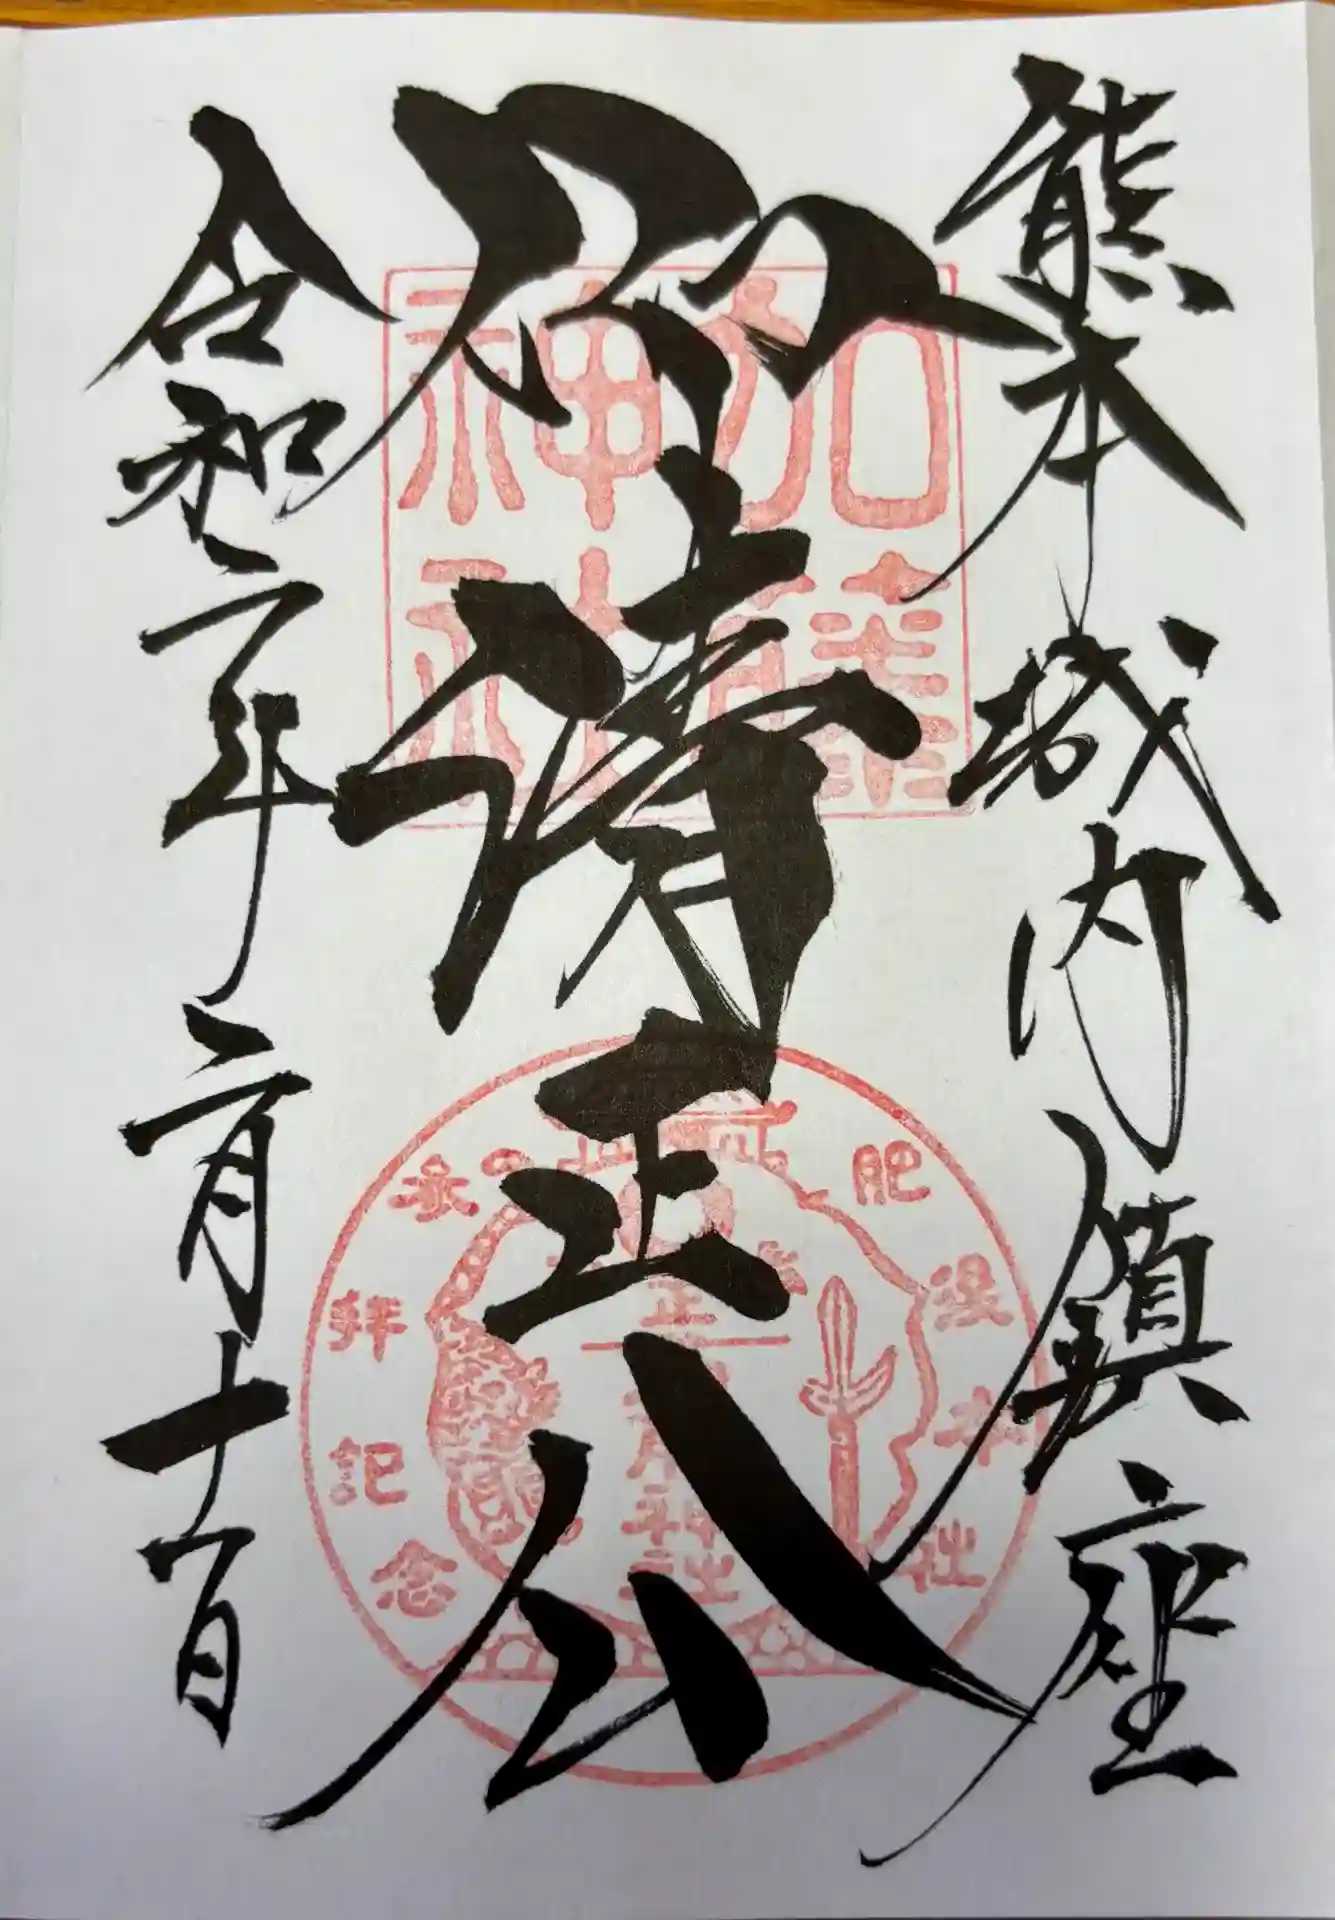 熊本城内鎮座
仰清正公
令和二年二月十一日
加藤
神社
肥後本社
清正公
神社
参拝記念